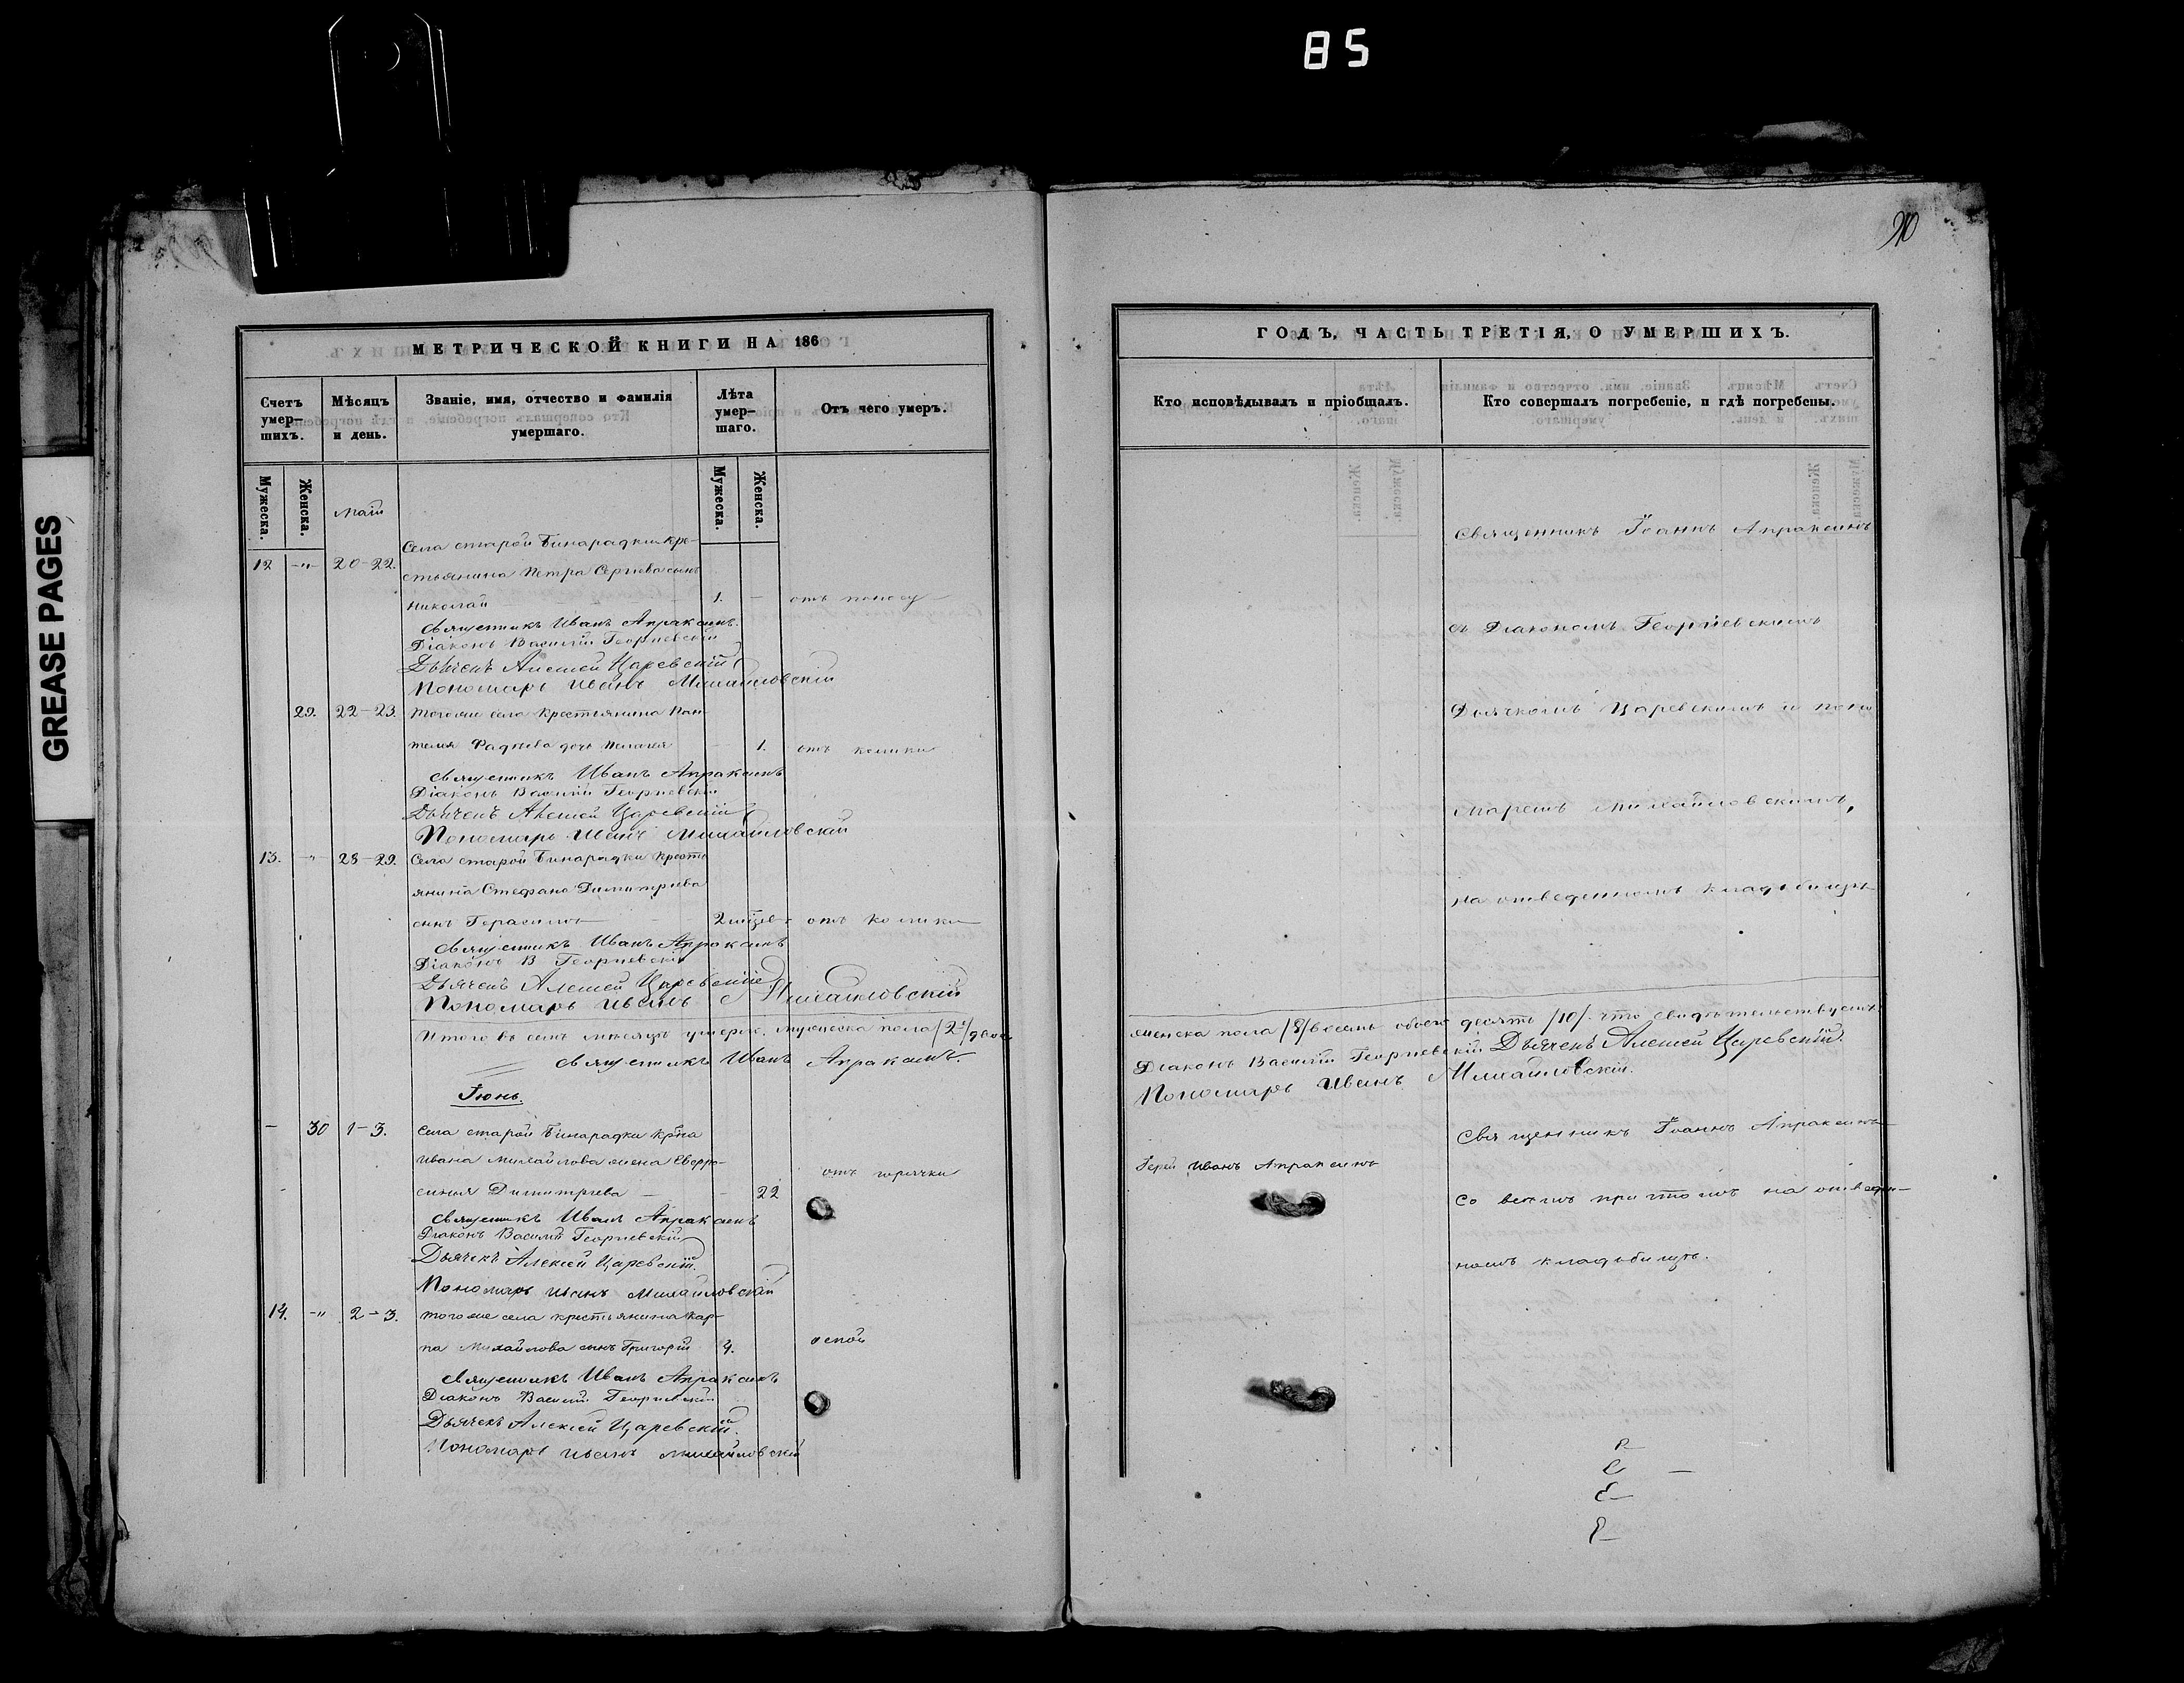 85
GREASE PAGES
МЕТРИЧЕСКОЙ КНИГИ НА 186
Счетъ умер-шихъ.
Мѣсяцъ и день.
Званіе, имя, отчество и фамилія умершаго.
Лѣта умер-шаго.
Отъ чего умеръ.
Мужеска.
Женска.
Мужеска.
Женска.
Маій
Села старой Бинарадки кре-
12 -"- 20-22. стьянина Петра Сергѣева сынъ
Николай 1. - отъ поносу
Священникъ Иванъ Апраксинъ.
Діаконъ Василій Георгіевскій
Дьячекъ Алексей Царевскій
Пономарь Иванъ Михайловскій
29. 22-23. Тогоже села крестьянина Пан-
телея дочь Пелагея 1. отъ колики
Священникъ Иванъ Апраксинъ
Діаконъ Василій Георгіевскій
Дьячекъ Алексей Царевскій
Пономарь Иванъ Михайловскій
13. -"- 28-29. Села старой Бинарадки кресть
янина Стефана Димитріева
сынъ Герасимъ 2 отъ колики
Священникъ Иванъ Апраксинъ
Діаконъ В Георгіевскій
Дьячекъ Алексей Царевскій
Пономарь Иванъ Михайловскій
Итого въ семъ мѣсяцѣ умерло мужеска пола /2/ двое
Священникъ Иванъ Апраксинъ.
Іюнь.
- 30 1-3. Села старой Бинарадки кр-на
Ивана Михайлова жена Евфро-
синья Димитріева - - 22 отъ горячки
Священникъ Иванъ Апраксинъ
Діаконъ Василій Георгіевскій
Дьячекъ Алексей Царевскій.
Пономарь Иванъ Михайловскій
14. -" 2-3. Тогоже села крестьянина Кар-
па Михайлова сынъ Григорій 4. оспой
Священникъ Иванъ Апраксинъ
Діаконъ Василій Георгіевскій
Дьячекъ Алексей Царевскій.
Пономарь Иванъ Михайловскій
ГОДЪ, ЧАСТЬ ТРЕТІЯ, О УМЕРШИХЪ.
Кто исповѣдывалъ и пріобщалъ.
Кто совершалъ погребеніе, и гдѣ погребены.
Священникъ Іоаннъ Апраксинъ
съ Діакономъ Георгіевскимъ
Дьячкомъ Царевскимъ и поно
маремъ Михайловскимъ,
на отведенномъ кладьбищѣ
женска пола /8/ восемь обоего десять /10/. что свидѣтельствуемъ
Діаконъ Василій Георгіевскій Дьячекъ Алексей Царевскій.
Пономарь Иванъ Михайловскій.
Священникъ Іоаннъ Апраксинъ
Іерей Иванъ Апраксинъ
со всемъ притомъ на отведен-
номъ кладьбищѣ.